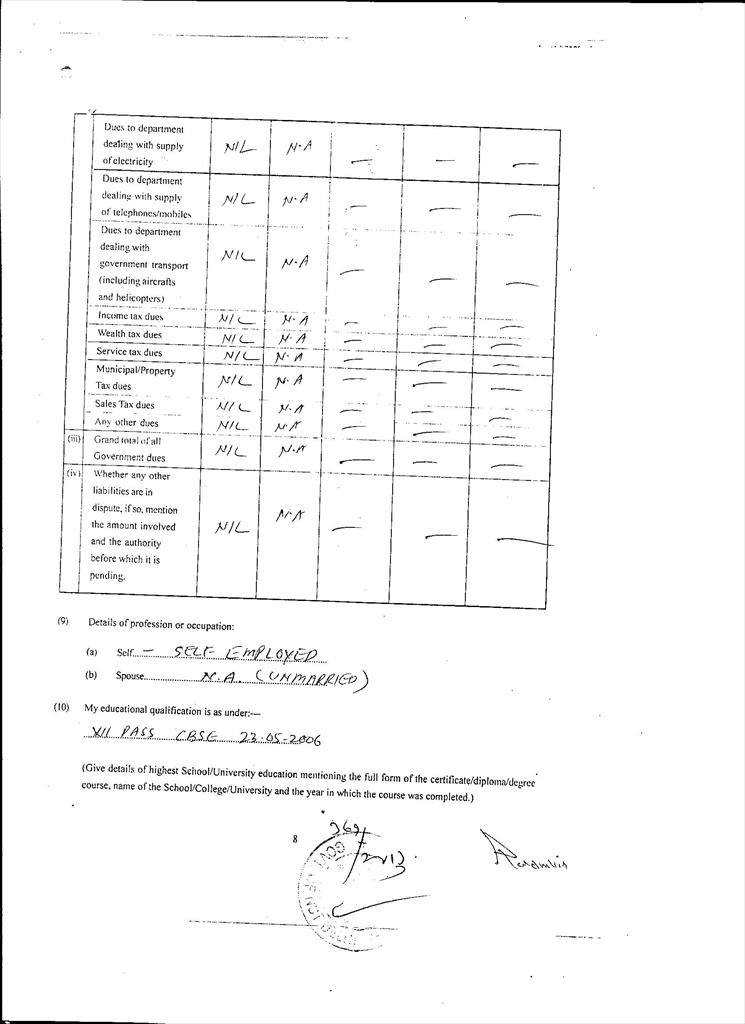 Dues to department
dealing with supply
of electricity NIL N.A — — —
Dues to department
dealing with supply
of telephones/mobiles NIL N.A — — —
Dues to department
dealing with
government transport
(including aircrafts
and helicopters) NIL N.A — — —
Income tax dues NIL N.A — — —
Wealth tax dues NIL N.A — — —
Service tax dues NIL N.A — — —
Municipal/Property
Tax dues NIL N.A — — —
Sales Tax dues NIL N.A — — —
Any other dues NIL N.A — — —
(iii) Grand total of all
Government dues NIL N.A — — —
(iv) Whether any other
liabilities are in
dispute, if so, mention
the amount involved
and the authority
before which it is
pending. NIL N.A — — —
(9) Details of profession or occupation:
(a) Self..... — SELF EMPLOYED
(b) Spouse..... N.A. (UNMARRIED)
(10) My educational qualification is as under:—
XII PASS CBSE 23-05-2006
(Give details of highest School/University education mentioning the full form of the certificate/diploma/degree
course, name of the School/College/University and the year in which the course was completed.)
8